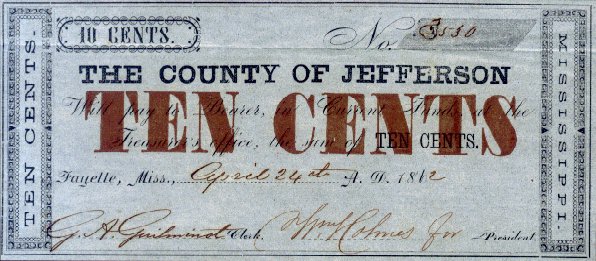 10 CENTS.
No. 3550
TEN CENTS.
MISSISSIPPI.
THE COUNTY OF JEFFERSON
Will pay to Bearer, in Current Funds, at the
TEN CENTS
Treasurer's office, the sum of TEN CENTS.
Fayette, Miss., April 24th A. D. 1862
G. A. Guilminot Clerk. Holmes for President